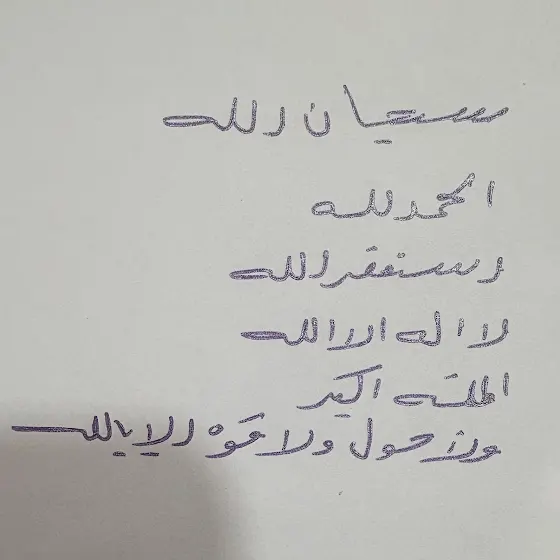 سبحان الله
الحمد لله
استغفر الله
لا اله الا الله
الله اكبر
ولا حول ولا قوه الا بالله